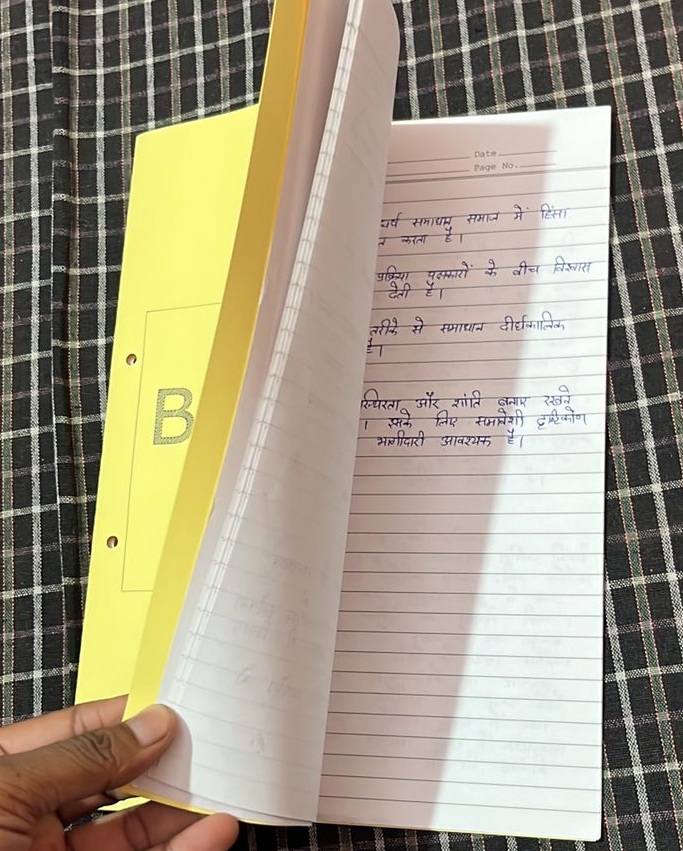 B
Date
Page No.
समाधान समाज में हिंसा
करता है।
के बीच विश्वास
देती है।
तरीके से समाधान दीर्घकालिक
है।
स्थिरता और शांति बनाए रखने
। इसके लिए समावेशी दृष्टिकोण
भागीदारी आवश्यक है।